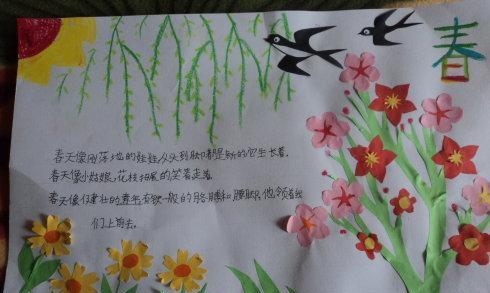 春
春天像刚落地的娃娃,从头到脚都是新的它生长着.
春天像小姑娘,花枝招展的笑着走着.
春天像健壮的青年有铁一般的胳膊和腰脚,他领着我
们上前去。